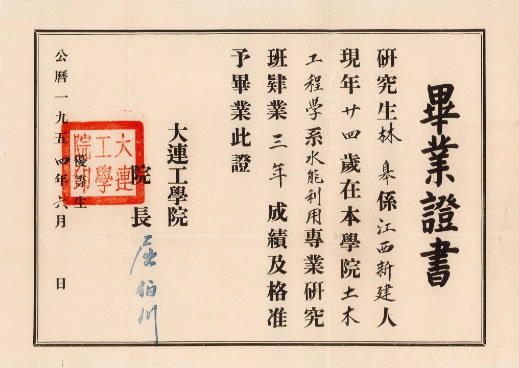 畢業證書
研究生林皋係江西新建人
現年廿四歲在本學院土木
工程學系水能利用專業研究
班肄業三年成績及格准
予畢業此證
大連工學院
院長
屈伯川
優等生
公曆一九五四年六月 日
大連工學院印